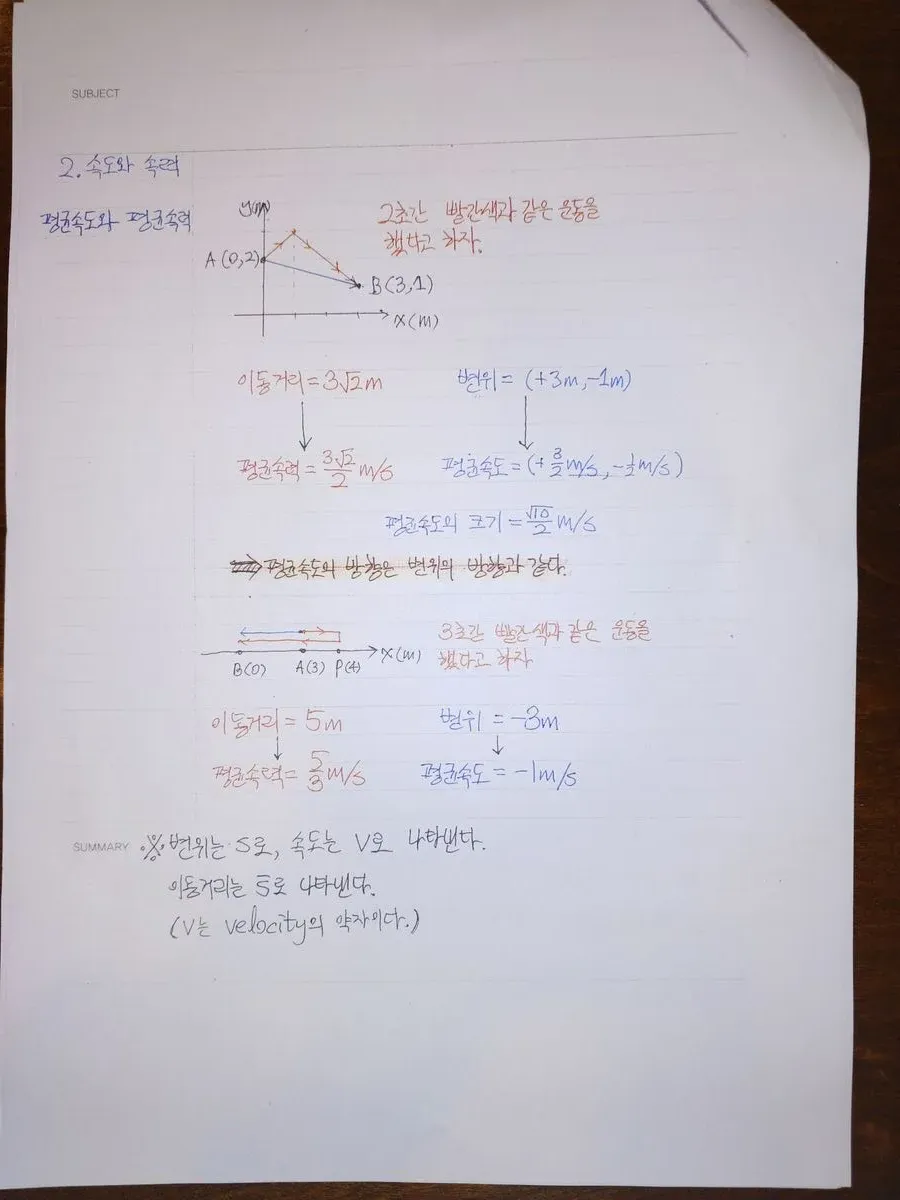 SUBJECT
2. 속도와 속력
평균속도와 평균속력
y(m)
2초간 빨간색과 같은 운동을
했다고 하자.
A(0,2)
B(3,1)
x(m)
이동거리=3√2m
변위=(+3m,-1m)
평균속력=3√2/2 m/s
평균속도=(+3/2m/s,-1/2m/s)
평균속도의 크기=√10/2 m/s
⇒평균속도의 방향은 변위의 방향과 같다.
3초간 빨간색과 같은 운동을
했다고 하자
x(m)
B(0) A(3) P(4)
이동거리=5m
변위=-3m
평균속력=5/3m/s
평균속도=-1m/s
SUMMARY
※변위는 S로, 속도는 V로 나타낸다.
이동거리는 S로 나타낸다.
(V는 velocity의 약자이다.)